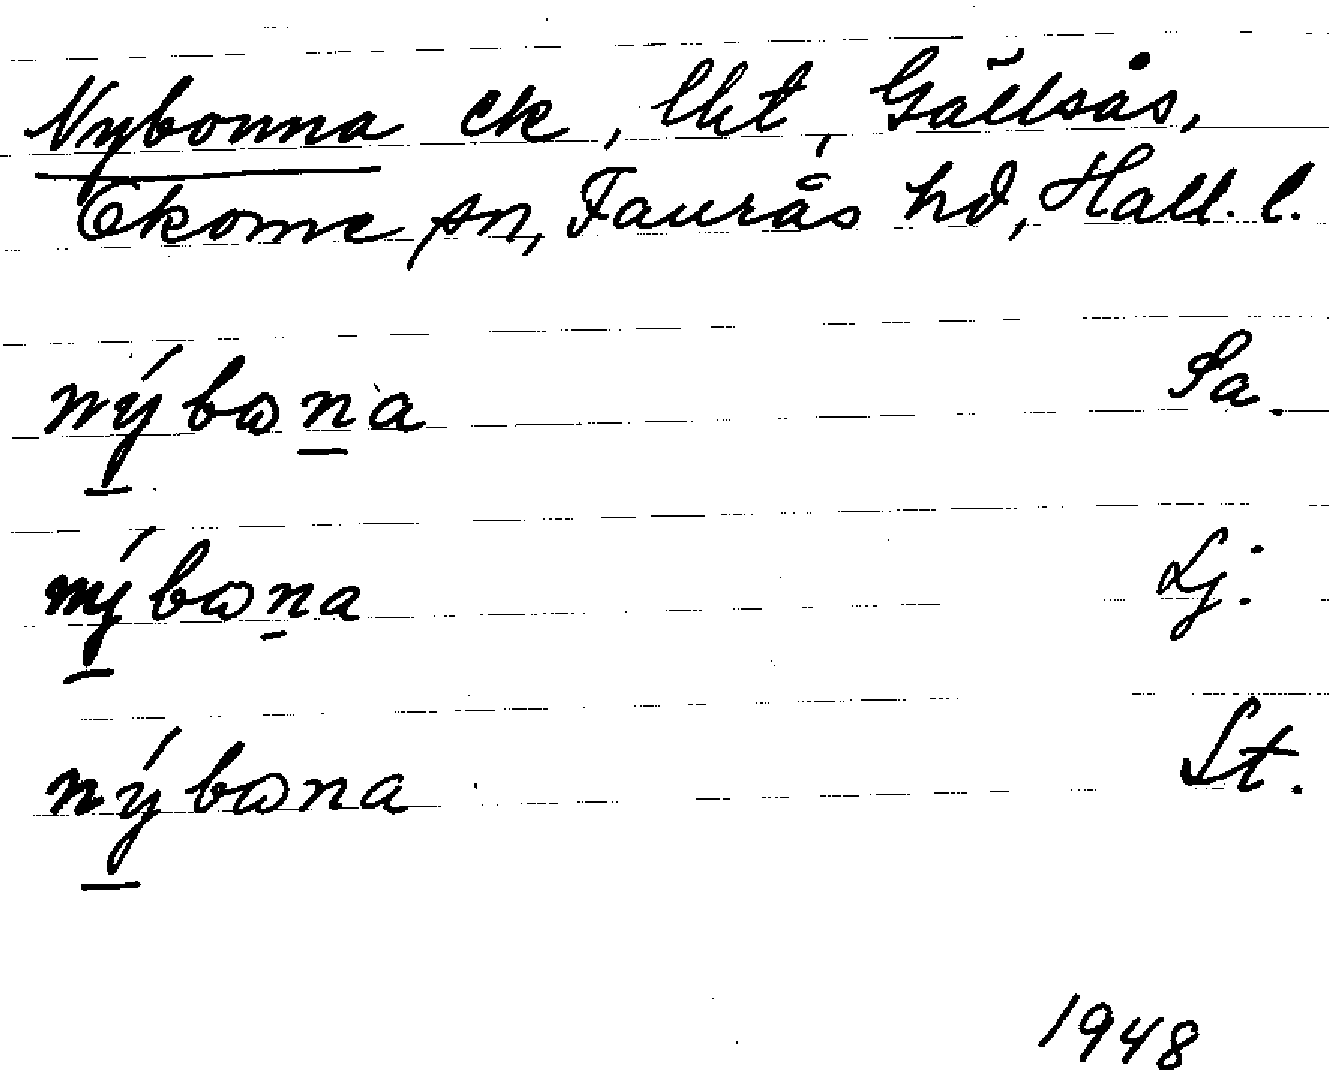 Nybonna ek, lht, Gällsås,
Ekome sn, Faurås hd, Hall. l.
nýbωna Sa.
nýbωna Lj.
nýbωna St.
1948